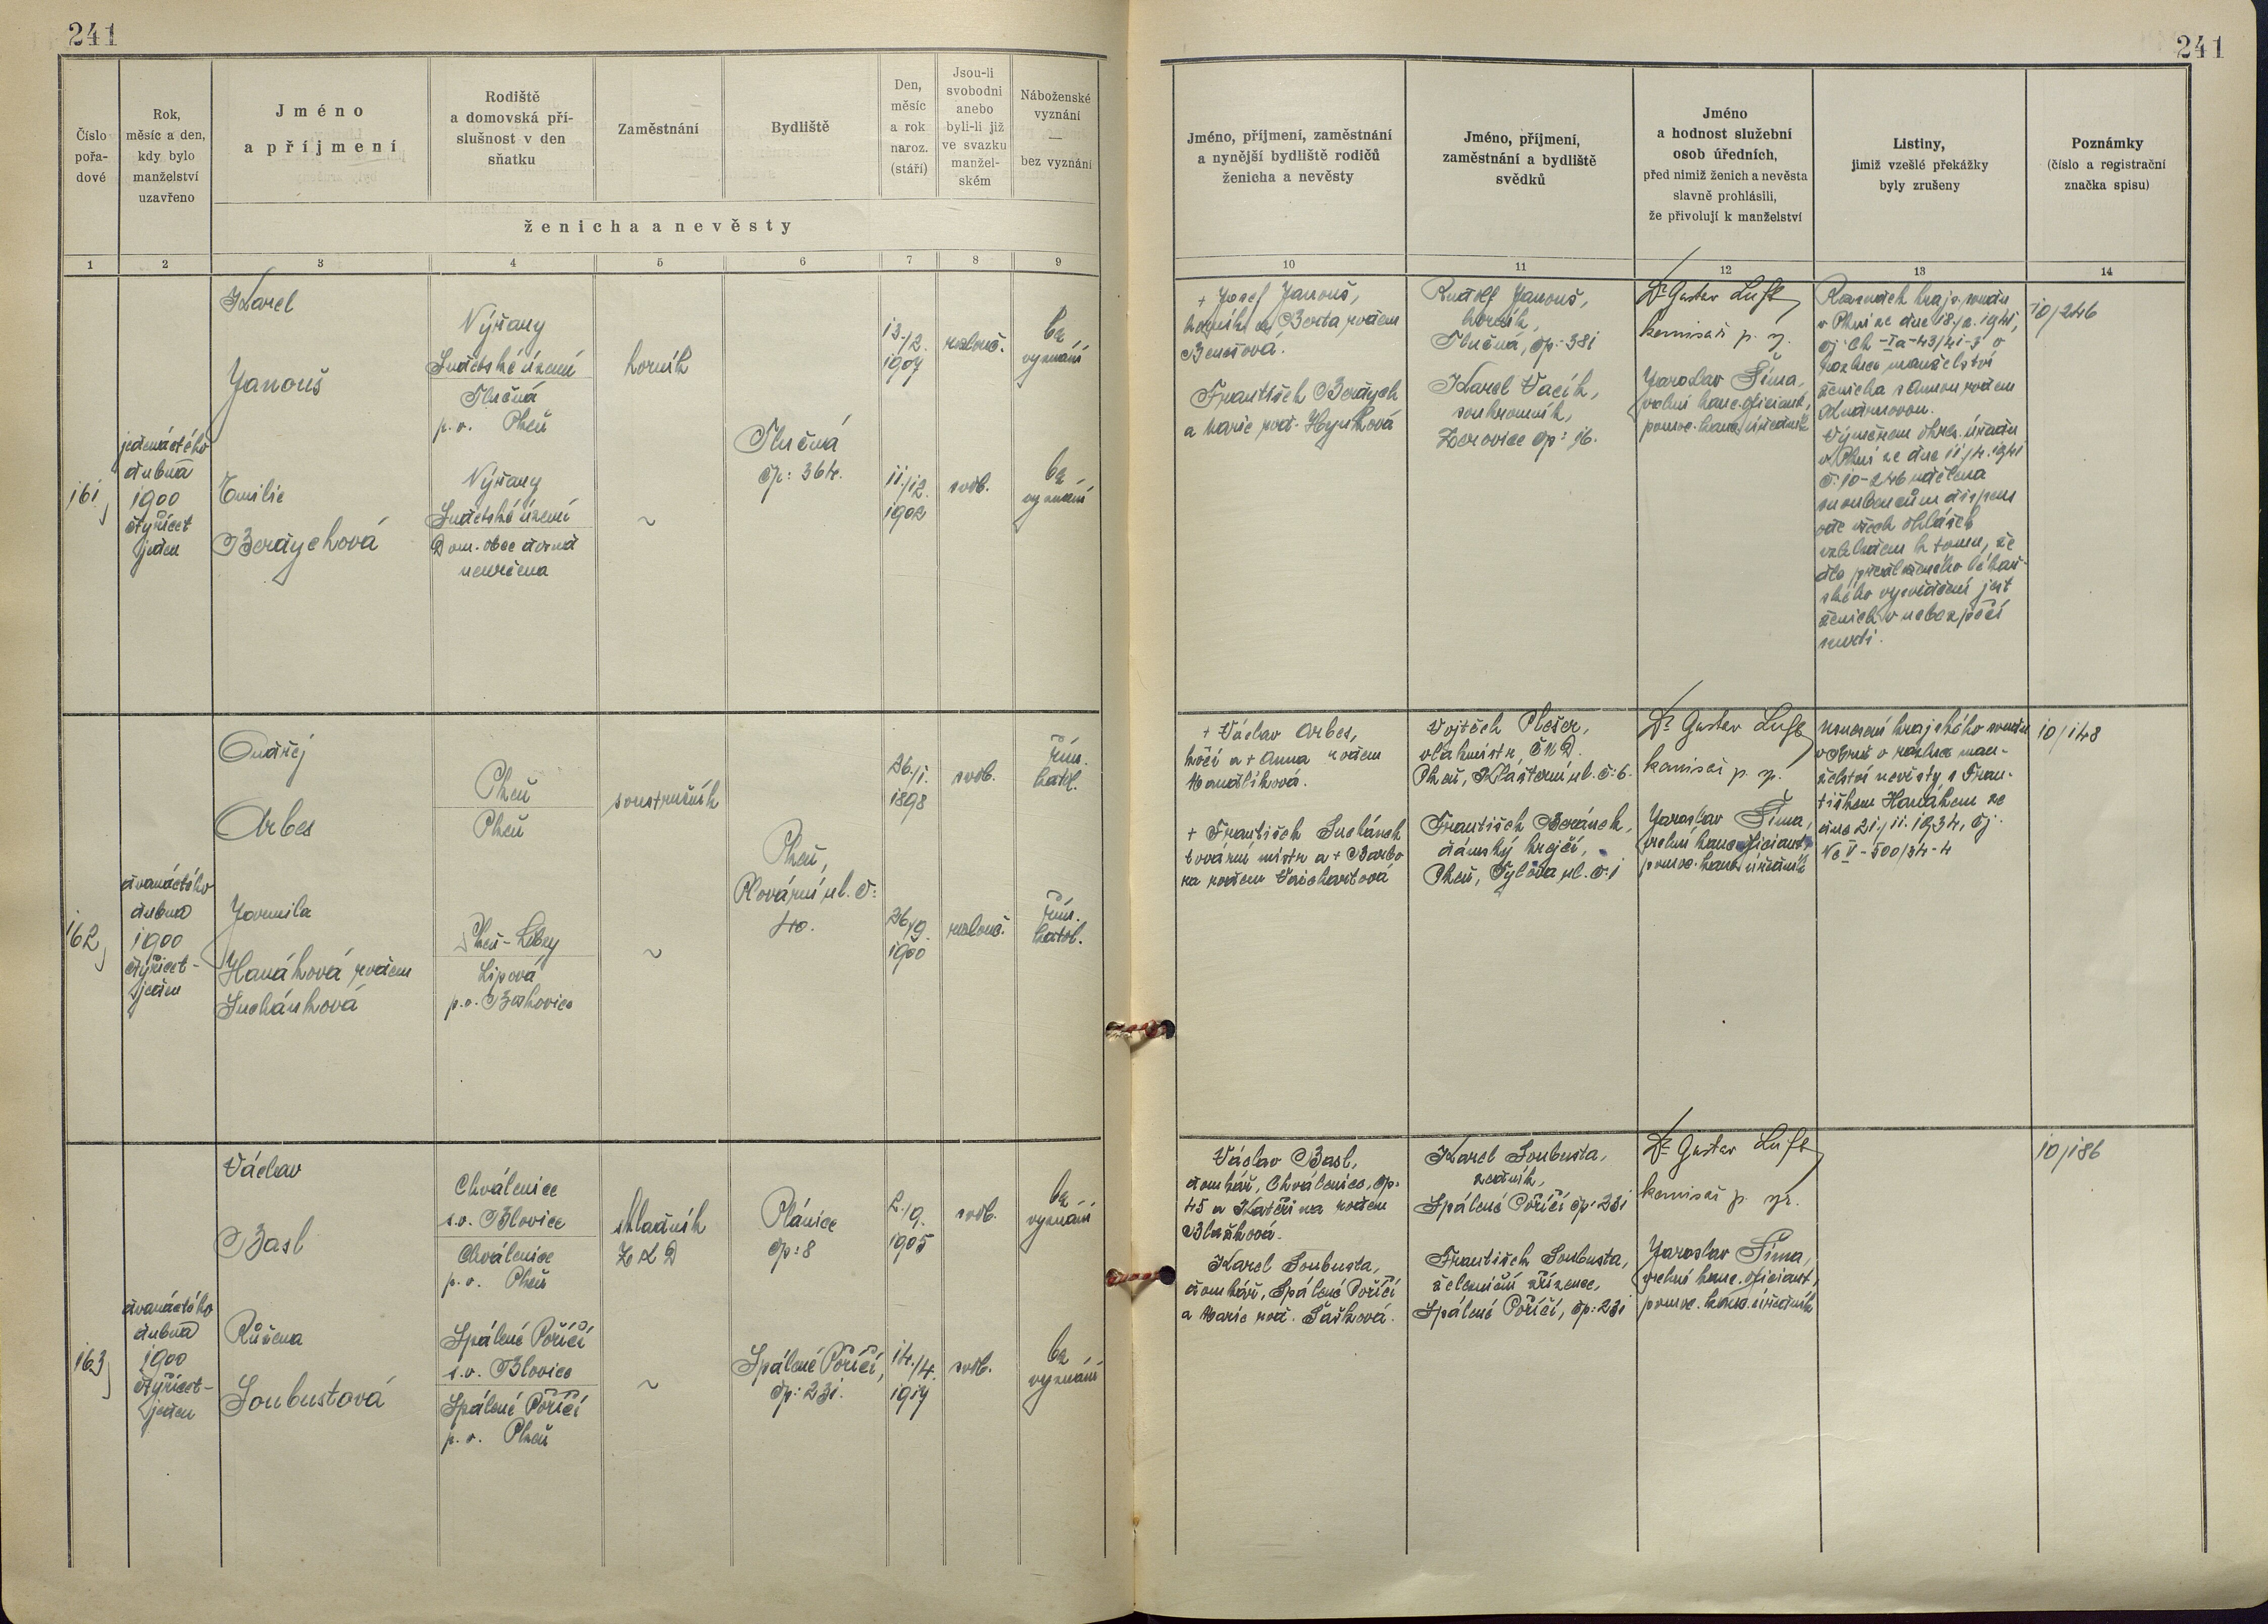 241
241
Číslo
pořa-
dové
Rok,
měsíc a den,
kdy bylo
manželství
uzavřeno
Jméno
a příjmení
Rodiště
a domovská pří-
slušnost v den
sňatku
Zaměstnání
Bydliště
Den,
měsíc
a rok
naroz.
(stáří)
Jsou-li
svobodni
anebo
byli-li již
ve svazku
manžel-
ském
Náboženské
vyznání
—
bez vyznání
ženicha a nevěsty
1 2 3 4 5 6 7 8 9
Jméno, příjmení, zaměstnání
a nynější bydliště rodičů
ženicha a nevěsty
Jméno, příjmení,
zaměstnání a bydliště
svědků
Jméno
a hodnost služební
osob úředních,
před nimiž ženich a nevěsta
slavně prohlásili,
že přivolují k manželství
Listiny,
jimiž vzešlé překážky
byly zrušeny
Poznámky
(číslo a registrační
značka spisu)
10 11 12 13 14
161
jedenáctého
dubna
1900
čtyřicet
jeden
Karel
Janouš
Nýřany
Sudetské území
Tlučná
p. o. Plzeň
horník
Tlučná
čp: 364.
13./2.
1907
rozlouč.
bez
vyznání
Emilie
Berdychová
Nýřany
Sudetské území
Dom. obec dosud
neurčena
~
11./12.
1902
svob.
bez
vyznání
+ Josef Janouš,
horník a Berta rodem
Benešová.
František Berdych
a Marie rod. Hynková
Rudolf Janouš,
horník,
Tlučná, čp: 381
Karel Vacík,
soukromník,
Zerovice čp: 16.
Dr Gustav Luft
komisař p. z.
Jaroslav Šíma,
vrchní kanc. oficiant,
pomoc. kanc. úředník
Rozsudek kraj. soudu
v Plzni ze dne 18./2. 1941,
čj: Ck-Ia-43/41-3 o
rozluce manželství
ženicha s Annou rodem
Výměrem okres. úřadu
v Plzni ze dne 11./4. 1941
č: 10-246 udělena
snoubencům dispens
ode všech ohlášek
vzhledem k tomu, že
dle předloženého lékař-
ského vysvědčení jest
ženich v nebezpečí
smrti.
10/246
162
dvanáctého
dubna
1900
čtyřicet-
jeden
Ondřej
Arbes
Plzeň
Plzeň
soustružník
Plzeň,
Plovární ul. č:
40.
26./1.
1898
svob.
řím.
katol.
Jarmila
Hanáková rodem
Suchánková
Plzeň-Lobzy
Lipová
p. o. Boskovice
~
26./9.
1900
rozlouč.
řím.
katol.
+ Václav Arbes,
kočí a + Anna rodem
František Suchánek
tovární mistr a + Barbo
ra rodem Vaichartová
Vojtěch Plešer,
vlakmistr, ČMD.
Plzeň, Klášterní ul. č: 6.
František Beránek,
dámský krejčí,
Plzeň, Tylova ul. č: 1
Dr Gustav Luft
komisař p. z.
Jaroslav Šíma,
vrchní kanc. oficiant,
pomoc. kanc. úředník
Usnesení krajského soudu
v Brně o rozluce man-
želství nevěsty s Fran-
tiškem Hanákem ze
dne 21./11. 1934, čj:
Nc V-500/34-4
10/148
163
dvanáctého
dubna
1900
čtyřicet-
jeden
Václav
Basl
Chválenice
s. o. Blovice
Chválenice
p. o. Plzeň
skladník
Plánice
čp: 8
2./9.
1905
svob.
bez
vyznání
Růžena
Soubustová
Spálené Poříčí
s. o. Blovice
Spálené Poříčí
p. o. Plzeň
~
Spálené Poříčí,
čp: 231.
14./4.
1917
svob.
bez
vyznání
Václav Basl,
domkář, Chválenice, čp:
45 a Kateřina rodem
Blažková.
Karel Soubusta,
domkář, Spálené Poříčí
a Marie rod. Šašková.
Karel Soubusta,
zedník,
Spálené Poříčí čp: 231
František Soubusta,
železniční zřízenec,
Spálené Poříčí, čp: 231
Dr Gustav Luft
komisař p. z.
Jaroslav Šíma,
vrchní kanc. oficiant,
pomoc. kanc. úředník
10/186